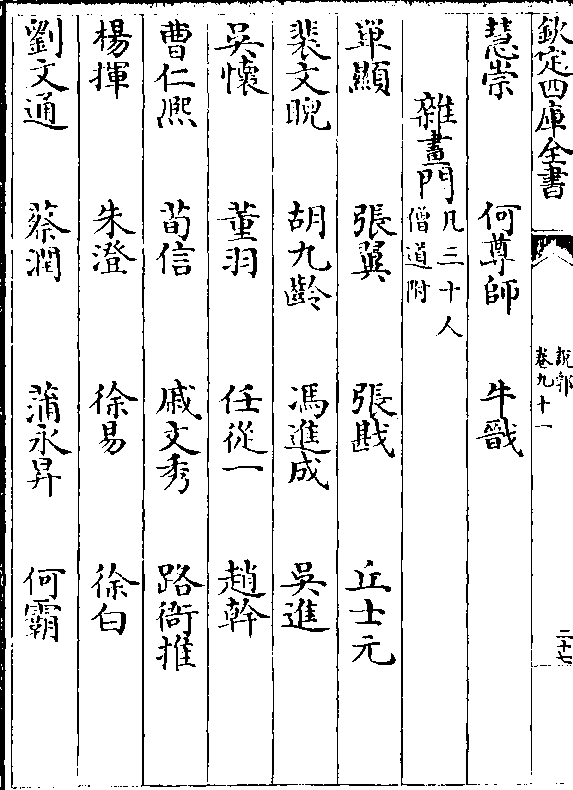 欽定四庫全書
說郛
卷九十一
二十七
慧崇 何尊師 牛戩
雜畫門凡三十人
僧道附
單顯 張翼 張戡 丘士元
裴文睍 胡九齡 馮進成 吳進
吳懷 董羽 任從一 趙幹
曹仁熈 荀信 戚文秀 路衙推
楊揮 朱澄 徐易 徐白
劉文通 蔡潤 蒲永昇 何霸